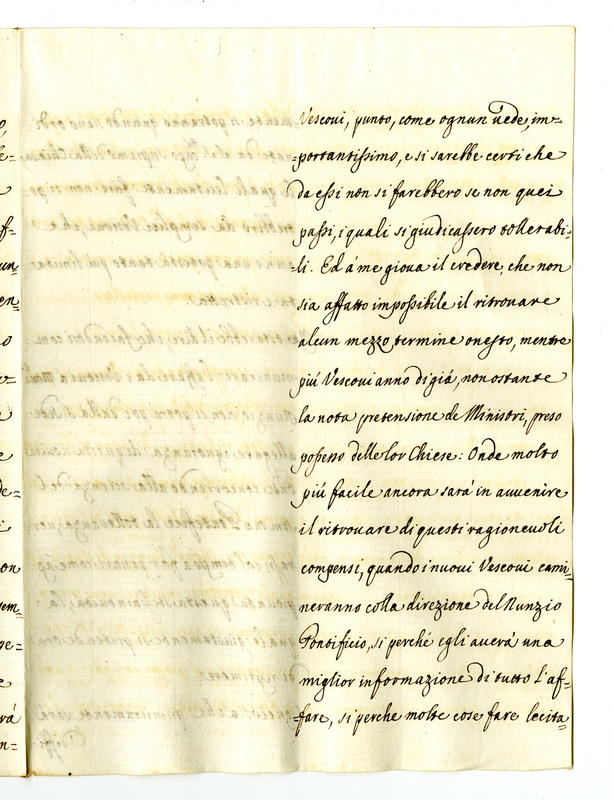 Vescovi, punto, come ognun vede, im=
=portantissimo, e si sarebbe certi che
da essi non si farebbero se non quei
passi, i quali si giudicassero tollerabi=
=li. Ed á me giova il credere, che non
sia affatto impossibile il ritrovare
alcun mezzo termine onesto, mentre
piú Vescovi anno di giá, non ostante
la nota pretensione de Ministri, preso
possesso delle lor Chiese: Onde molto
piú facile ancora sará in avvenire
il ritrovare di questi ragionevoli
compensi, quando i nuovi Vescovi cami=
neranno colla direzione del Nunzio
Pontificio, si perché egli averá una
miglior informazione di tutto l'af=
=fare, si perche molte cose fare lecita=